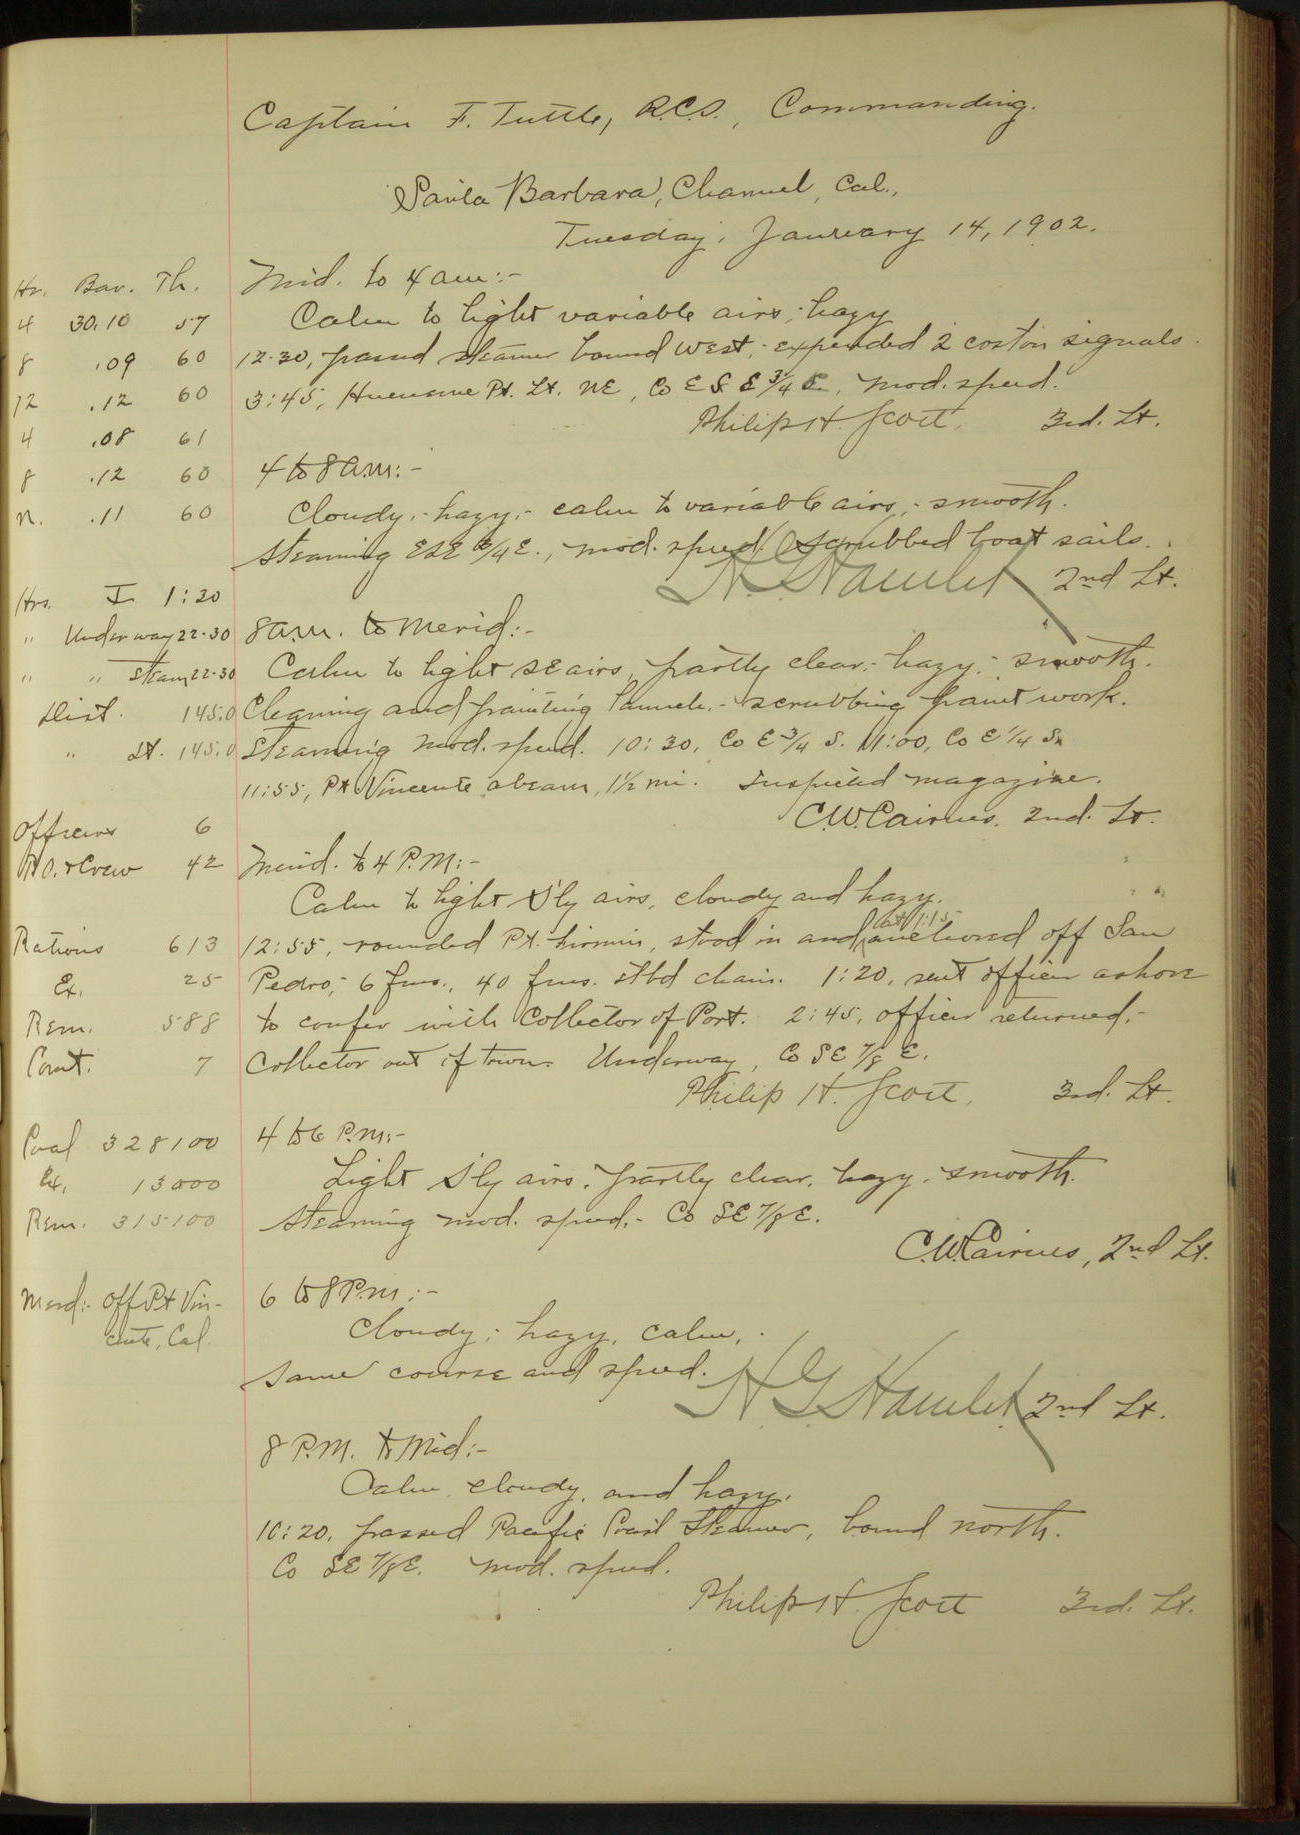 Captain F. Tuttle, R.C.S., Commanding.
Santa Barbara, Channel, Cal.,
Tuesday, January 14, 1902.
Hr. Bar. Th.
4 30.10 57
8 .09 60
12 .12 60
4 .08 61
8 .12 60
n. .11 60
Hrs. 1:30
" Underway 22-30
" " Steam 22-30
Dist. 145.0
" St. 145.0
Officers 6
P.O. & Crew 42
Rations 613
Ex. 25
Rem. 588
Comt. 7
Coal 328100
Ex. 13000
Rem. 315100
Merd:- Off Pt Vin-
cente, Cal.
Mid. to 4 am:-
Calm to light variable airs; hazy
12.30, passed steamer bound West,- expended 2 coston signals.
3:45, Hueneme Pt. Lt. NE, Co ESE 3/4 E., mod. speed.
Philip H. Scott, 3rd. Lt.
4 to 8 a.m:-
Cloudy,- hazy,- calm to variable airs,- smooth.
Steaming ESE 3/4 E., mod. speed. Scrubbed boat sails.
H. G. Hamlet 2nd Lt.
8 a.m. to merid:-
Calm to light SE airs, partly clear,- hazy,- smooth.
Cleaning and painting launch,- scrubbing paint work.
Steaming mod. speed. 10:30, Co E 3/4 S. 11:00, Co E 1/4 S.
11:55, Pt Vincente abeam, 1½ mi. Inspected magazine.
C.W. Cairnes, 2nd. Lt.
Merid. to 4 P.M:-
Calm to light S'ly airs, cloudy and hazy.
12:55, rounded Pt. Firmin, stood in and at 1:15 anchored off San
Pedro; 6 fms., 40 fms. stbd chain. 1:20, sent officer ashore
to confer with Collector of Port. 2:45, officer returned,-
Collector out of town. Underway, Co SE 7/8 E.
Philip H. Scott, 3rd. Lt.
4 to 6 P.m:-
Light S'ly airs, partly clear, hazy, smooth.
Steaming mod. speed,- Co SE 7/8 E.
C.W. Cairnes, 2nd Lt.
6 to 8 P.m:-
Cloudy; hazy, calm,.
Same course and speed.
H G Hamlet 2nd Lt.
8 P.M. to Mid:-
Calm, cloudy, and hazy.
10:20, passed Pacific Coast Steamer, bound north.
Co SE 7/8 E. mod. speed.
Philip H. Scott 3rd. Lt.